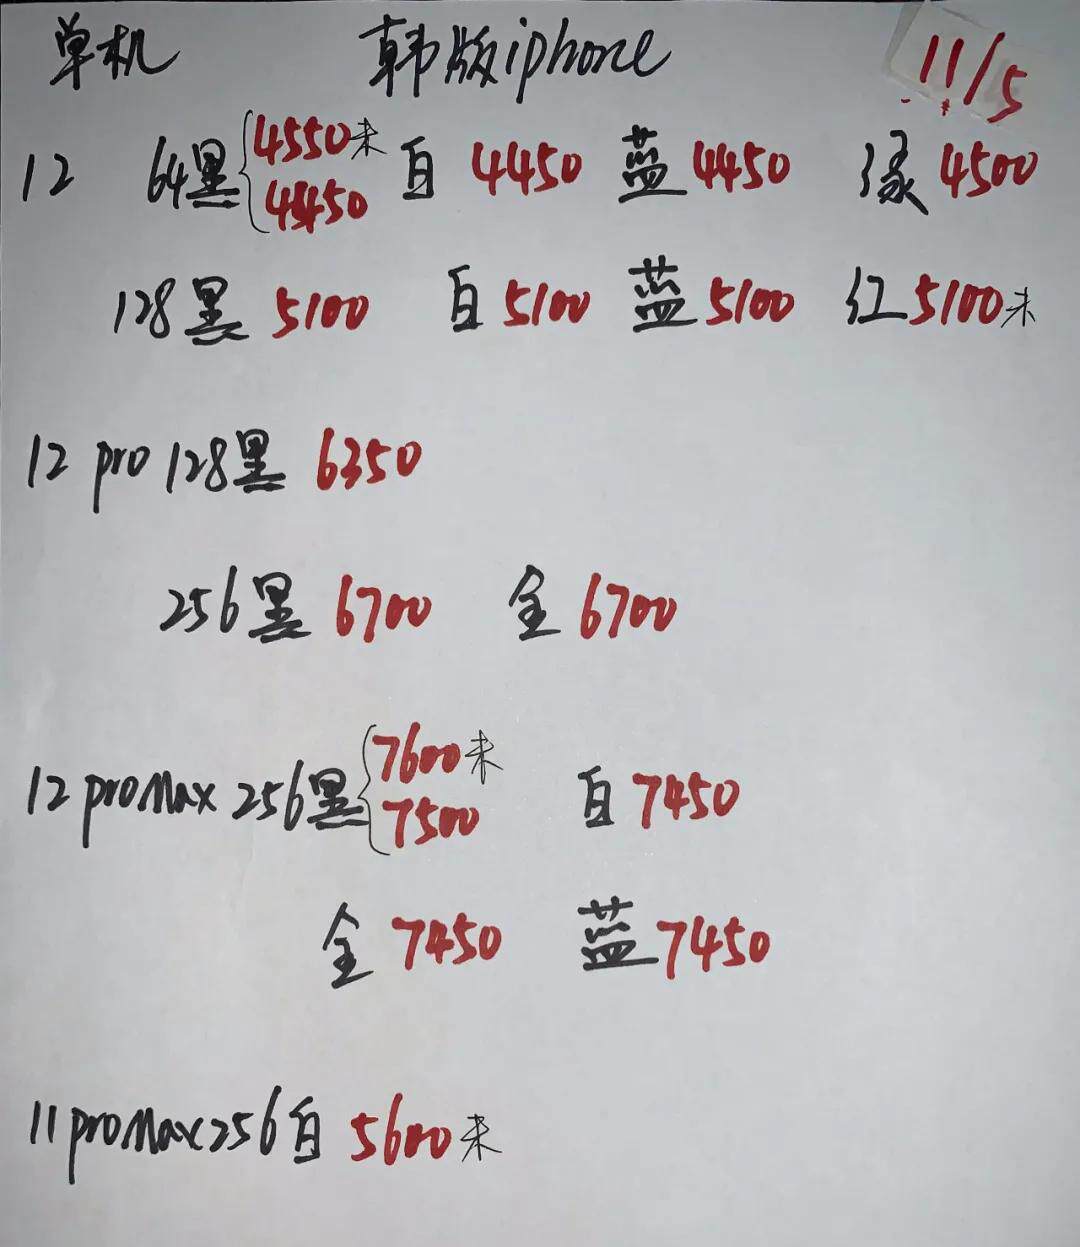 单机 韩版iphone 11/5
12 64黑 4550未 白 4450 蓝 4450 绿 4500
4450
128黑 5100 白 5100 蓝 5100 红 5100未
12 pro 128黑 6350
256黑 6700 金 6700
12 proMax 256黑 7600未 白 7450
7500
金 7450 蓝 7450
11 proMax 256白 5600未